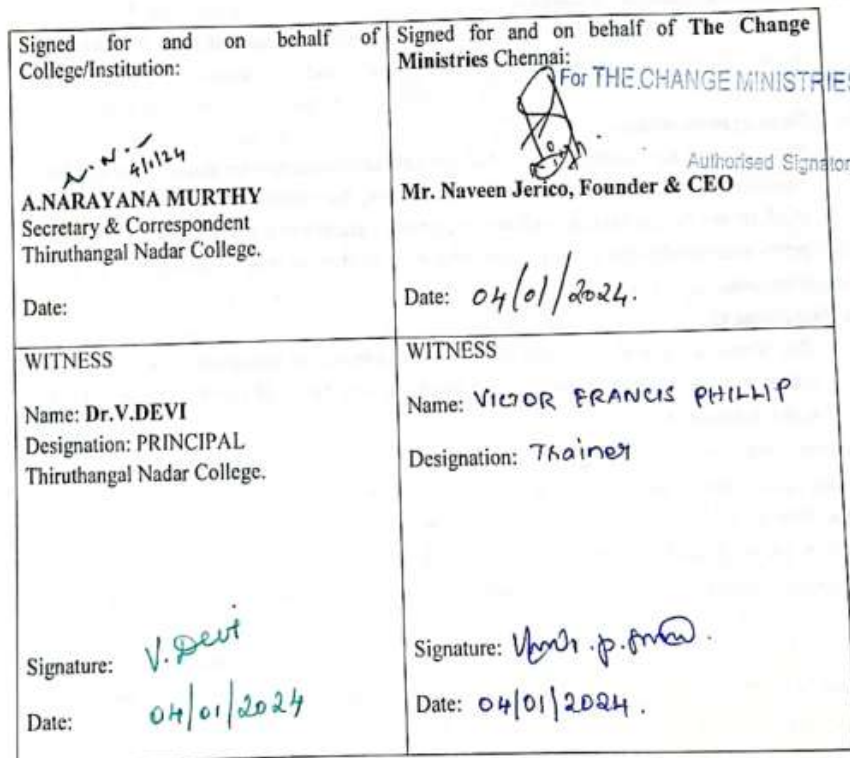 Signed for and on behalf of
College/Institution:
4/1/24
A.NARAYANA MURTHY
Secretary & Correspondent
Thiruthangal Nadar College.
Date:
Signed for and on behalf of The Change
Ministries Chennai:
For THE CHANGE MINISTRIES
Authorised Signator
Mr. Naveen Jerico, Founder & CEO
Date: 04/01/2024.
WITNESS
Name: Dr.V.DEVI
Designation: PRINCIPAL
Thiruthangal Nadar College.
Signature: V. Devi
Date: 04/01/2024
WITNESS
Name: VICTOR FRANCIS PHILLIP
Designation: Trainer
Signature:
Date: 04/01/2024.